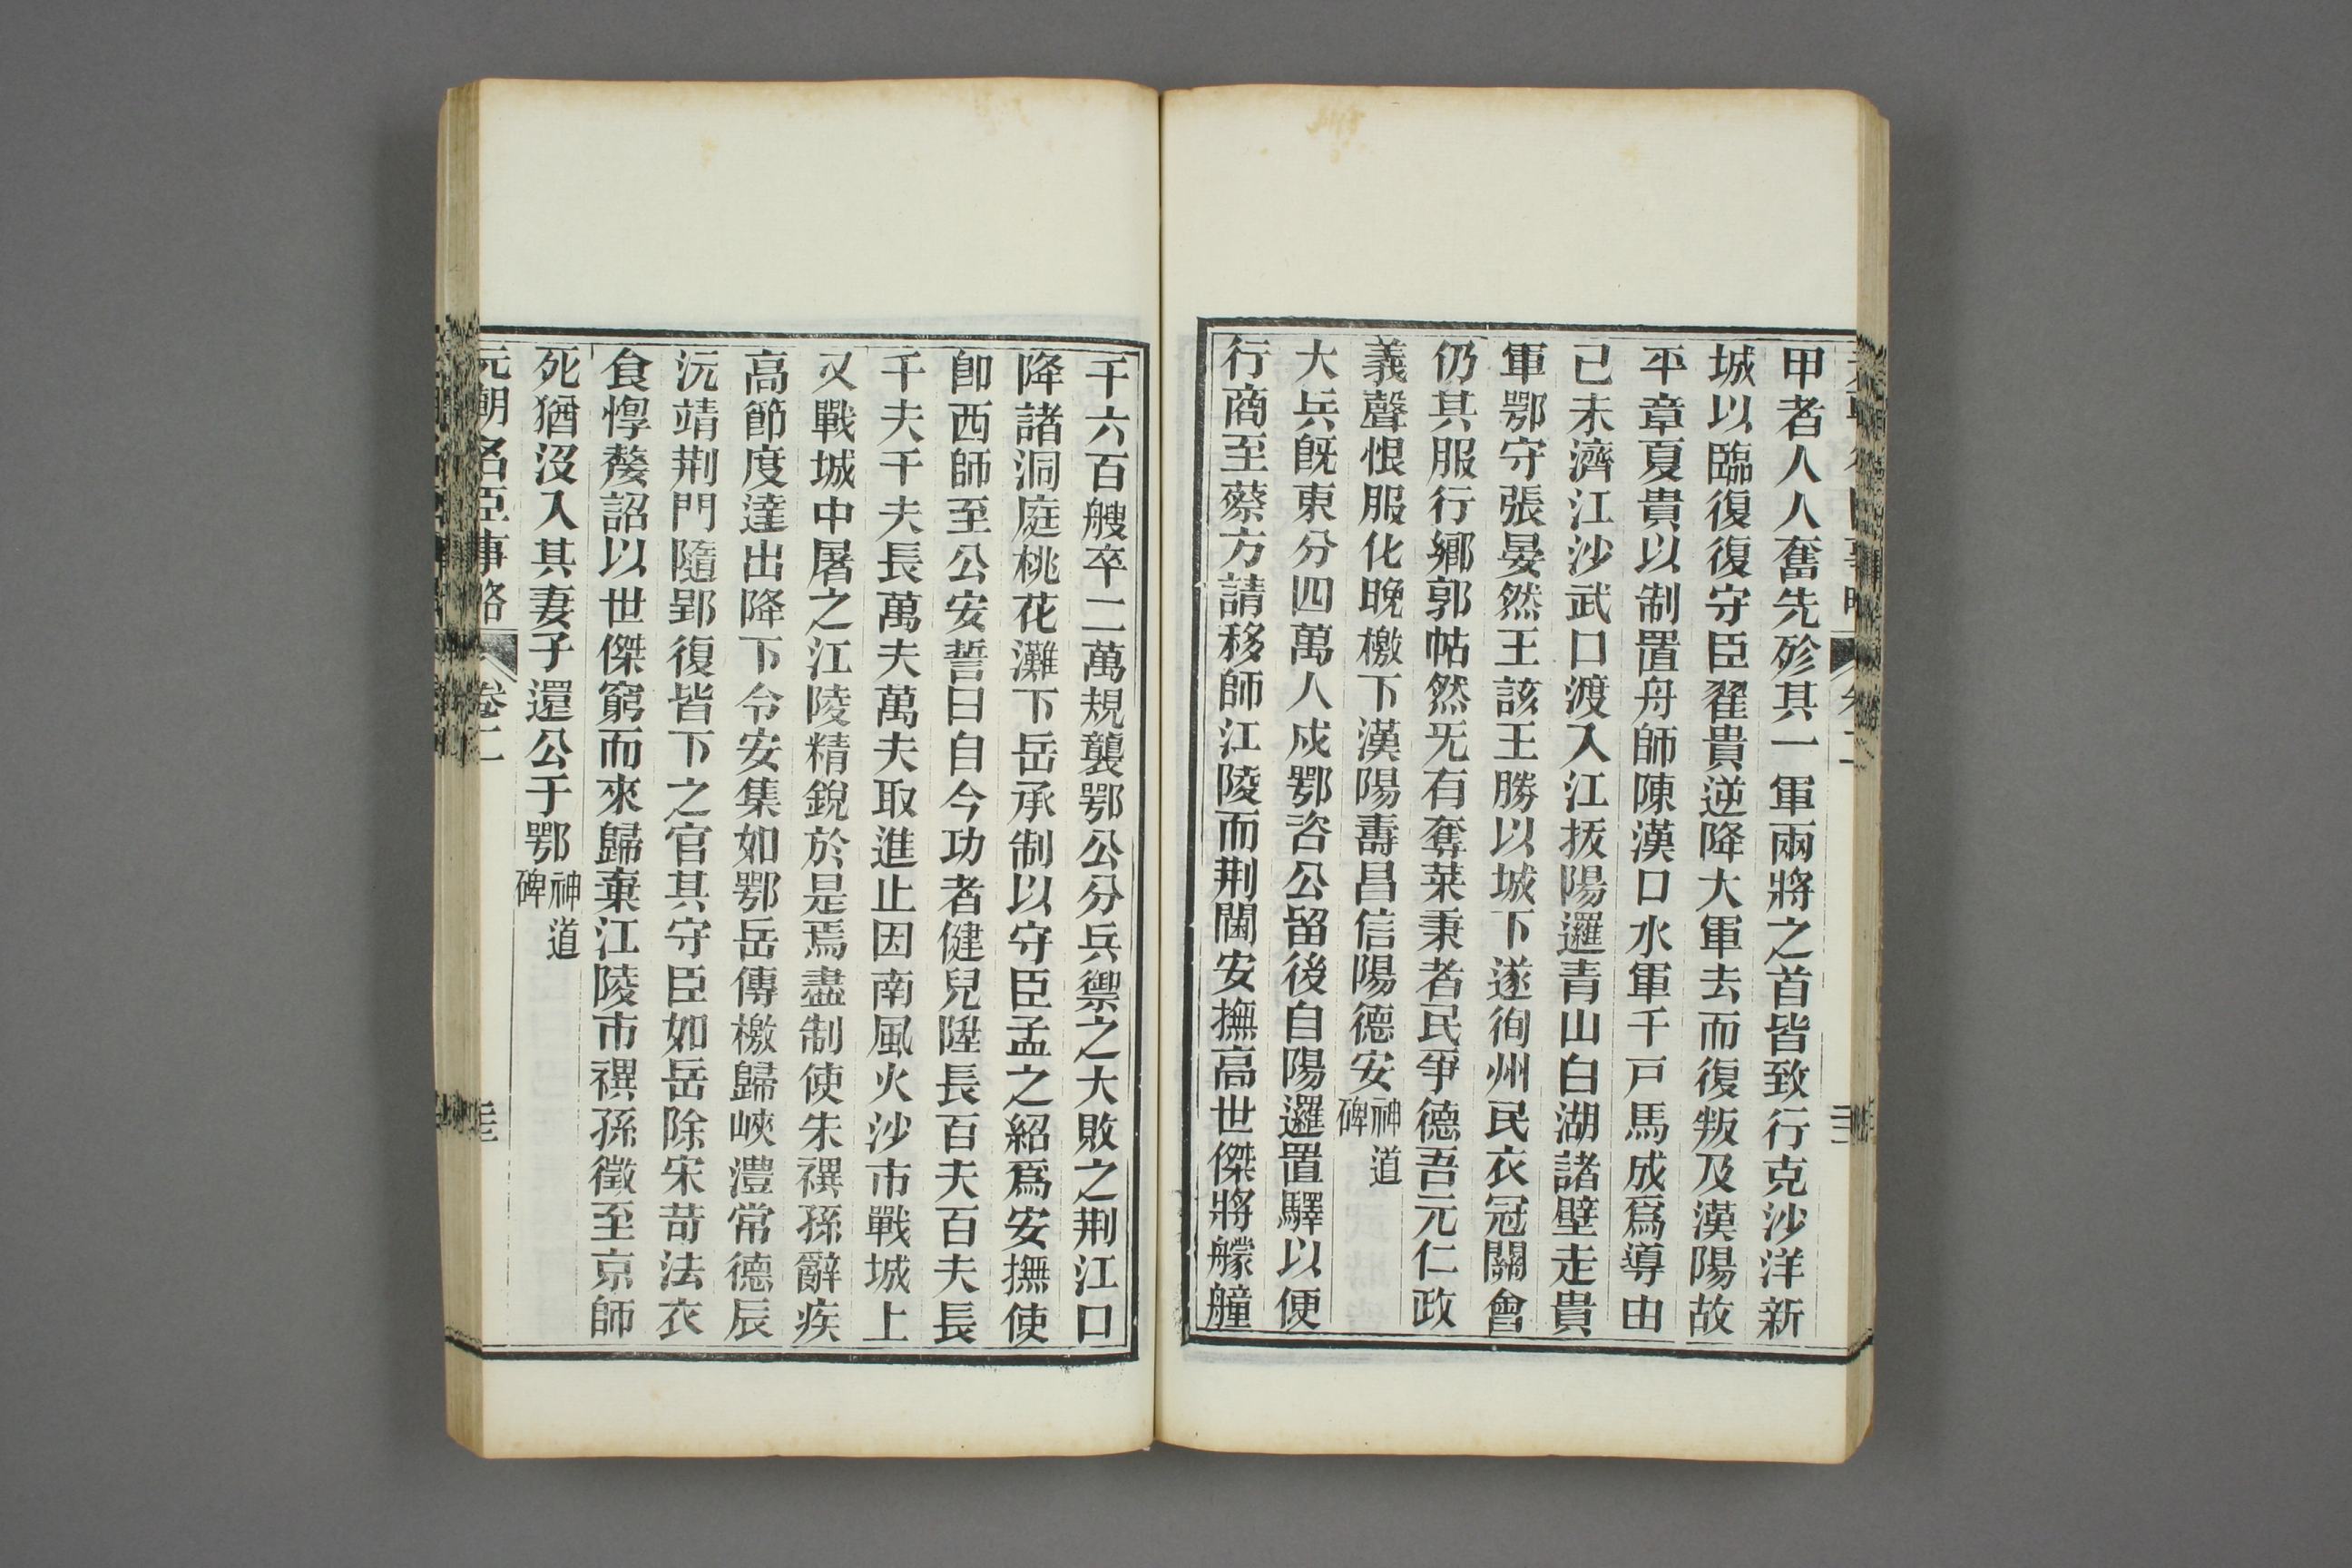 甲者人人奮先殄其一軍兩將之首皆致行克沙洋新
城以臨復復守臣翟貴逆降大軍去而復叛及漢陽故
平章夏貴以制置舟師陳漢口水軍千戸馬成爲導由
己未濟江沙武口渡入江抜陽邏青山白湖諸壁走貴
軍鄂守張晏然王該王勝以城下遂徇州民衣冠關會
仍其服行鄉郭帖然旡有奪菜秉者民爭德吾元仁政
義聲恨服化晚檄下漢陽壽昌信陽德安神道碑
大兵旣東分四萬人戍鄂咨公留後自陽邏置驛以便
行商至蔡方請移師江陵而荆閫安撫高世傑將艨艟
千六百艘卒二萬規襲鄂公分兵禦之大敗之荆江口
降諸洞庭桃花灘下岳承制以守臣孟之紹爲安撫使
卽西師至公安誓曰自今功者健兒陞長百夫百夫長
千夫千夫長萬夫萬夫取進止因南風火沙市戰城上
又戰城中屠之江陵精銳於是焉盡制使朱禩孫辭疾
高節度達出降下令安集如鄂岳傳檄歸峽澧常德辰
沅靖荆門隨郢復皆下之官其守臣如岳除宋苛法衣
食惸嫠詔以世傑窮而來歸棄江陵市禩孫徵至京師
死猶沒入其妻子還公于鄂神道碑
元朝名臣事略 卷二